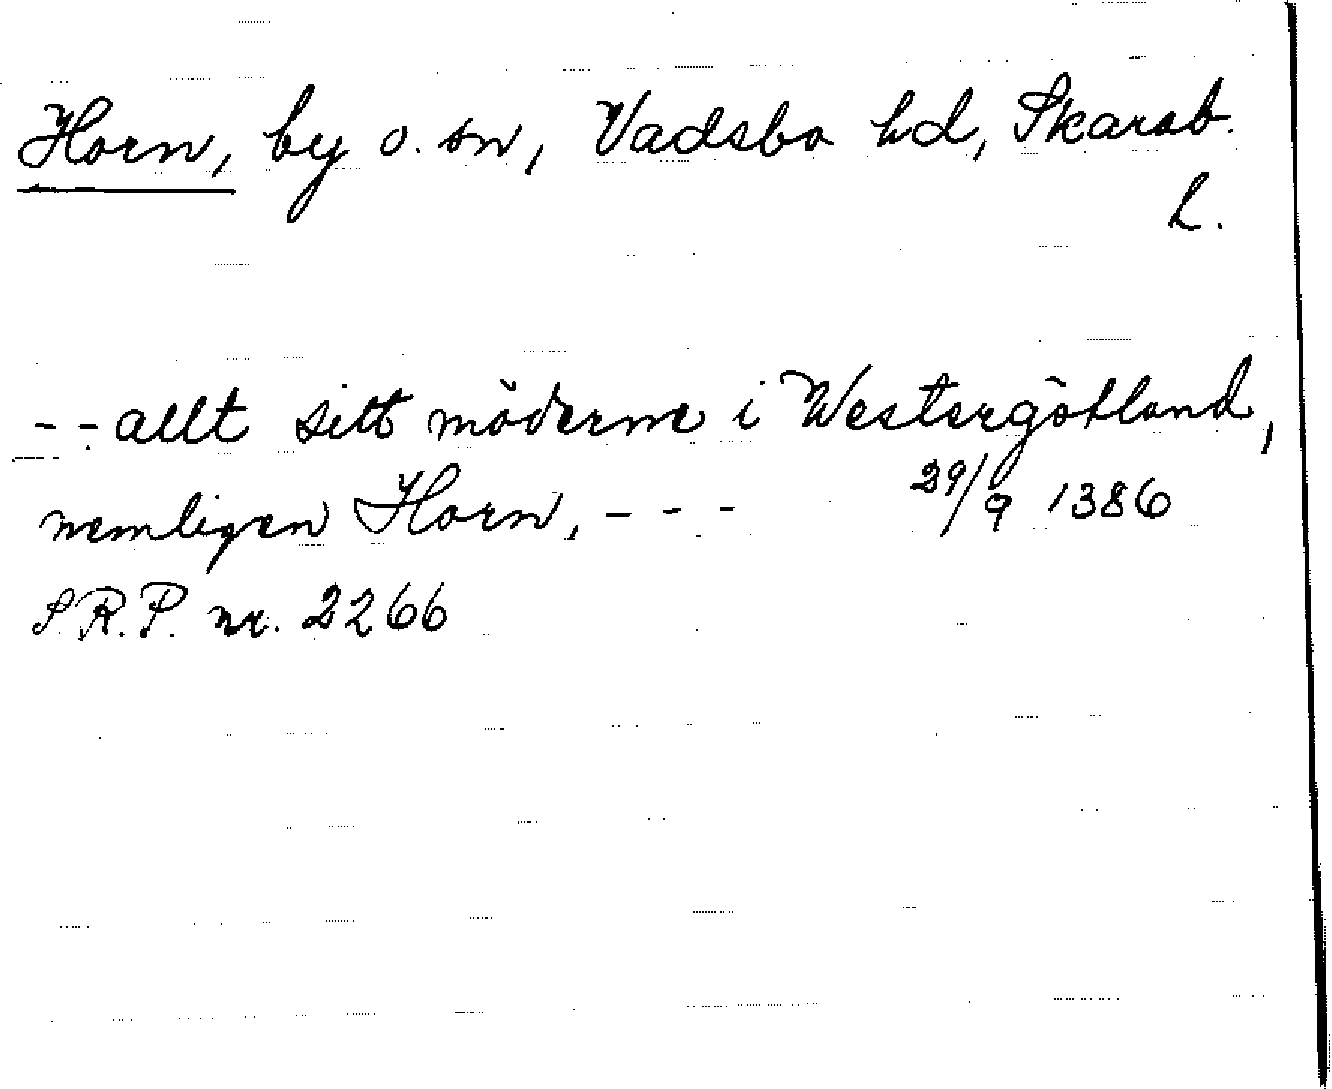 Horn, by o. sn, Vadsbo hd, Skarab.
L.
- - allt sitt möderne i Westergötland,
nemligen Horn, - - - 29/9 1386
S.R.P. nr. 2266